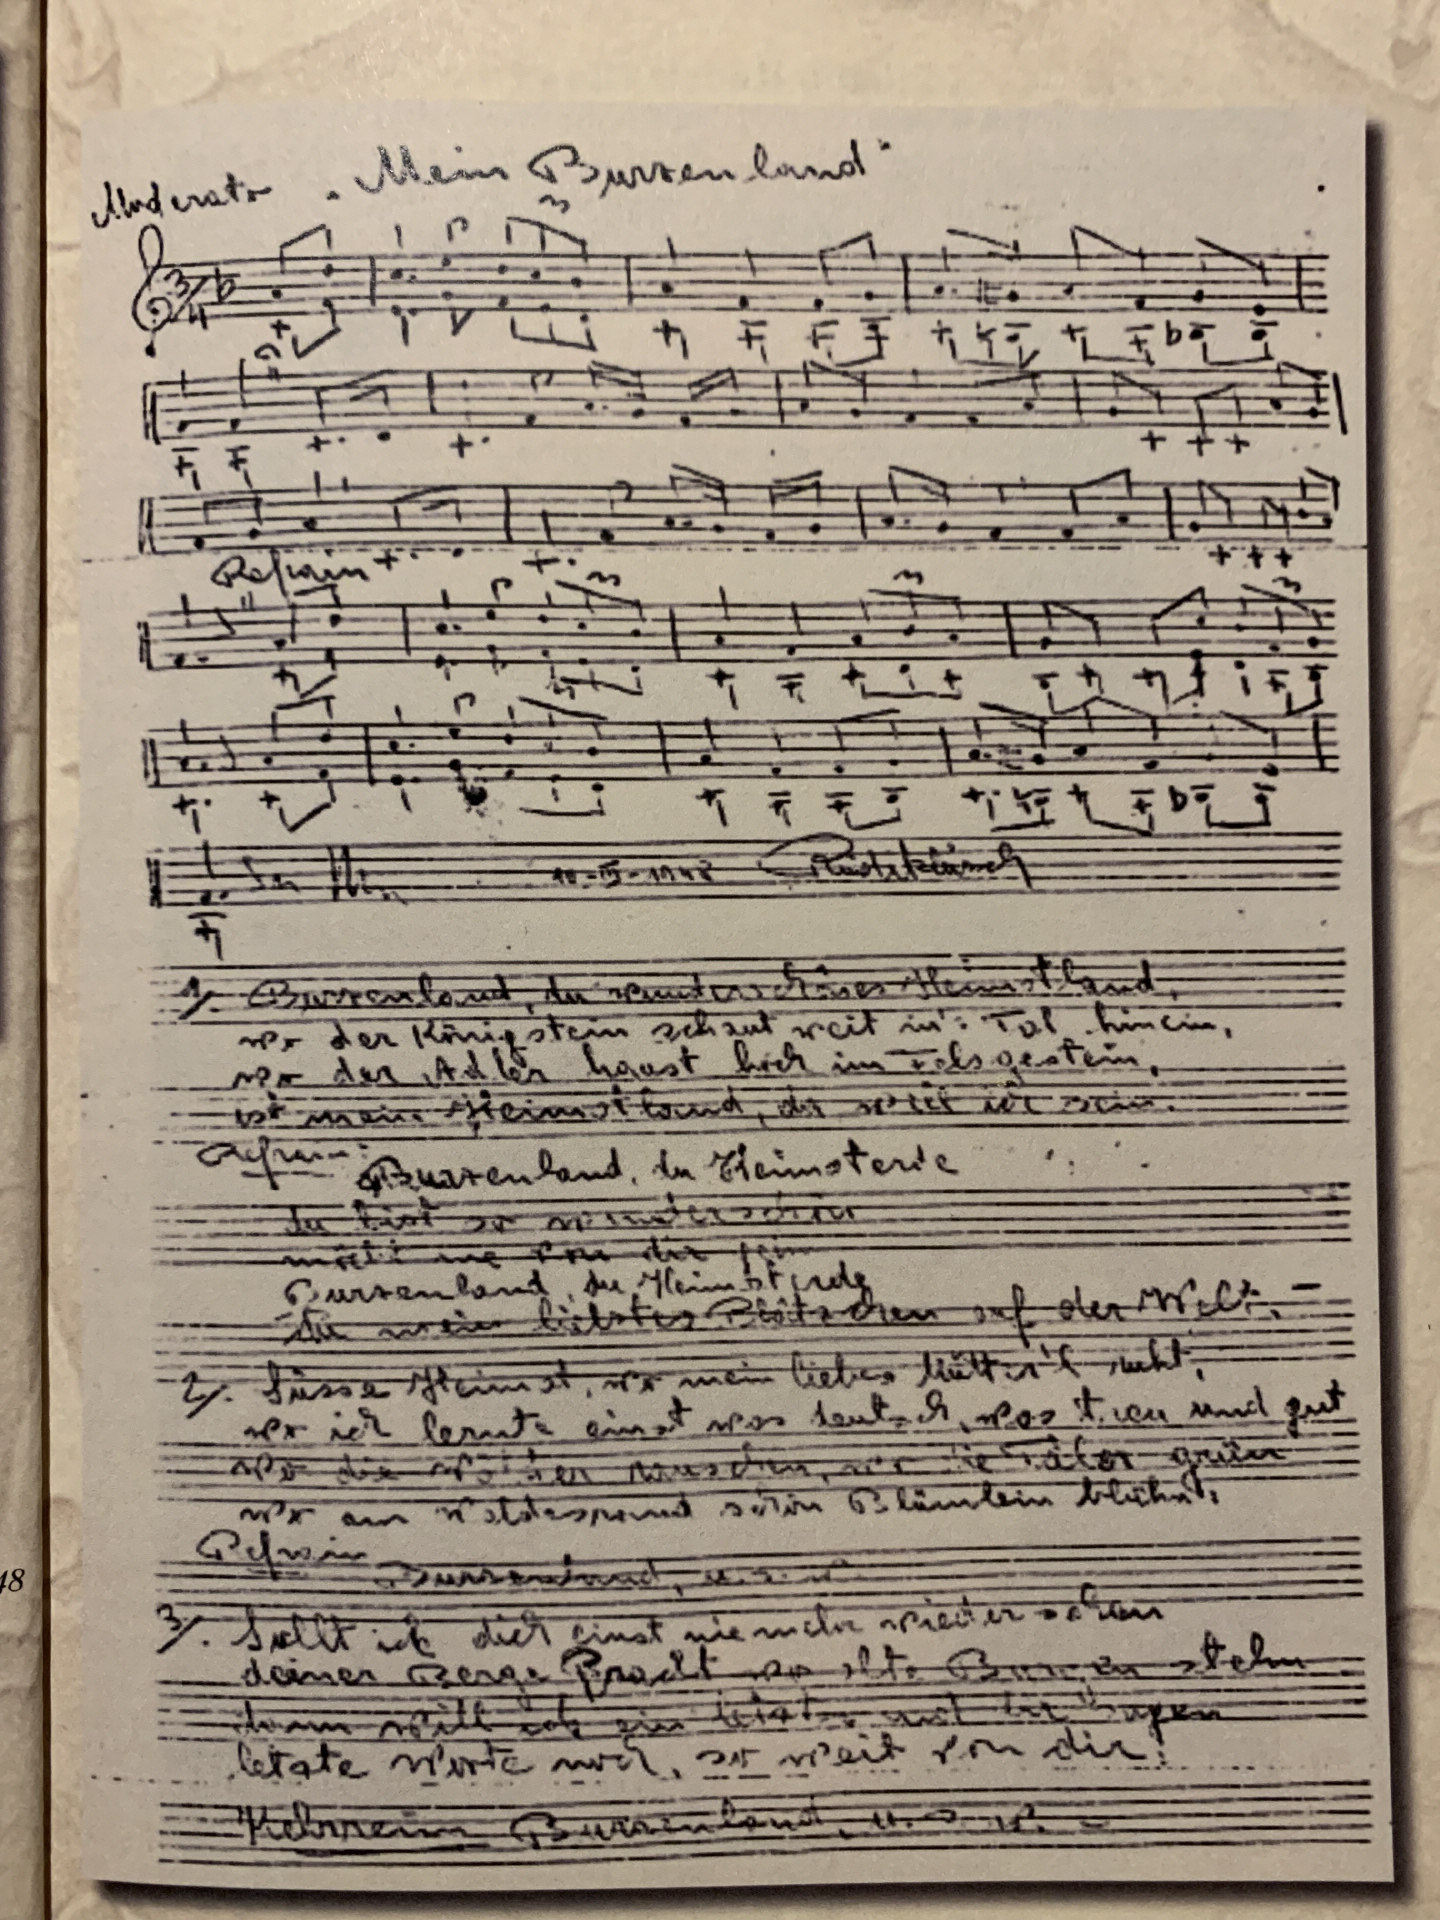 „Mein Burzenland"
Moderato
3/4
3
Refrain
3
3
3
1948
1). Burzenland, du wunderschönes Heimatland,
wo der Königstein schaut weit in's Tal hinein,
wo der Adler haust hoch im Felsgestein,
ist mein Heimatland, da will ich sein.
Refrain:
Burzenland, du Heimaterde
du bist so wunderschön
möcht nie von dir
Burzenland, du Heimaterde
du mein liebstes Plätzchen auf der Welt. –
2). Süsse Heimat, wo mein liebes Mütterl ruht,
wo ich lernte einst was deutsch, was treu und gut
wo die Wälder rauschen, wo die Täler grün
wo am Waldesrand schön Blümlein blühn.
Refrain Burzenland, u.s.w.
3). Sollt ich dich einst niemehr wieder sehen
deiner Berge Pracht wo alte Burgen stehn
dann will ich ein
letzte Worte noch, so weit von dir!
Kehrreim Burzenland, u.s.w. –
48